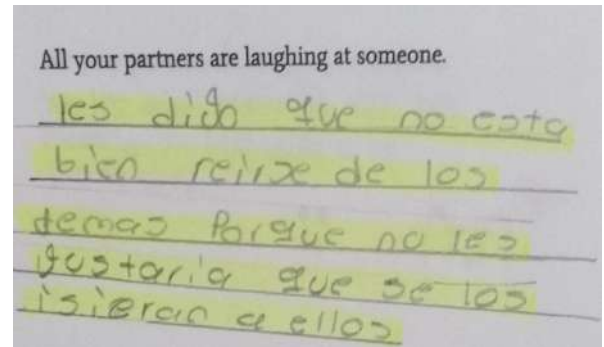 All your partners are laughing at someone.
les dido que no esta
bien reirse de los
demas Porque no les
gustaria que se los
isieran a ellos